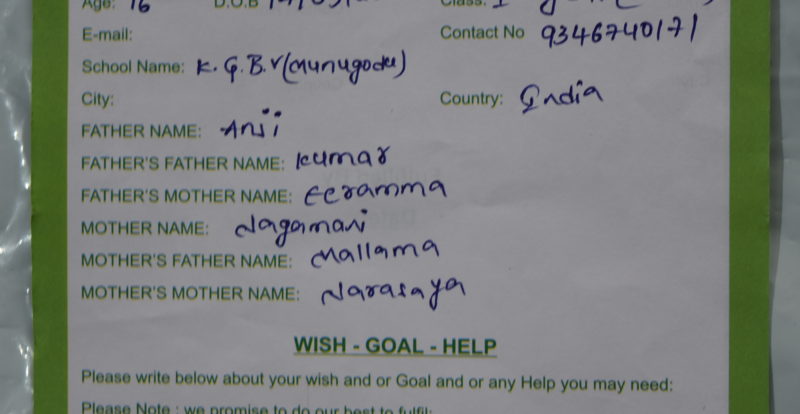 Age: 16 D.O.B Class: I
E-mail: Contact No 9346740171
School Name: K.G.B.V(Munugode)
City: Country: India
FATHER NAME: Anji
FATHER'S FATHER NAME: Kumar
FATHER'S MOTHER NAME: Eeramma
MOTHER NAME: Nagamani
MOTHER'S FATHER NAME: Mallama
MOTHER'S MOTHER NAME: Narasaya
WISH - GOAL - HELP
Please write below about your wish and or Goal and or any Help you may need:
Please Note : we promise to do our best to fulfil: